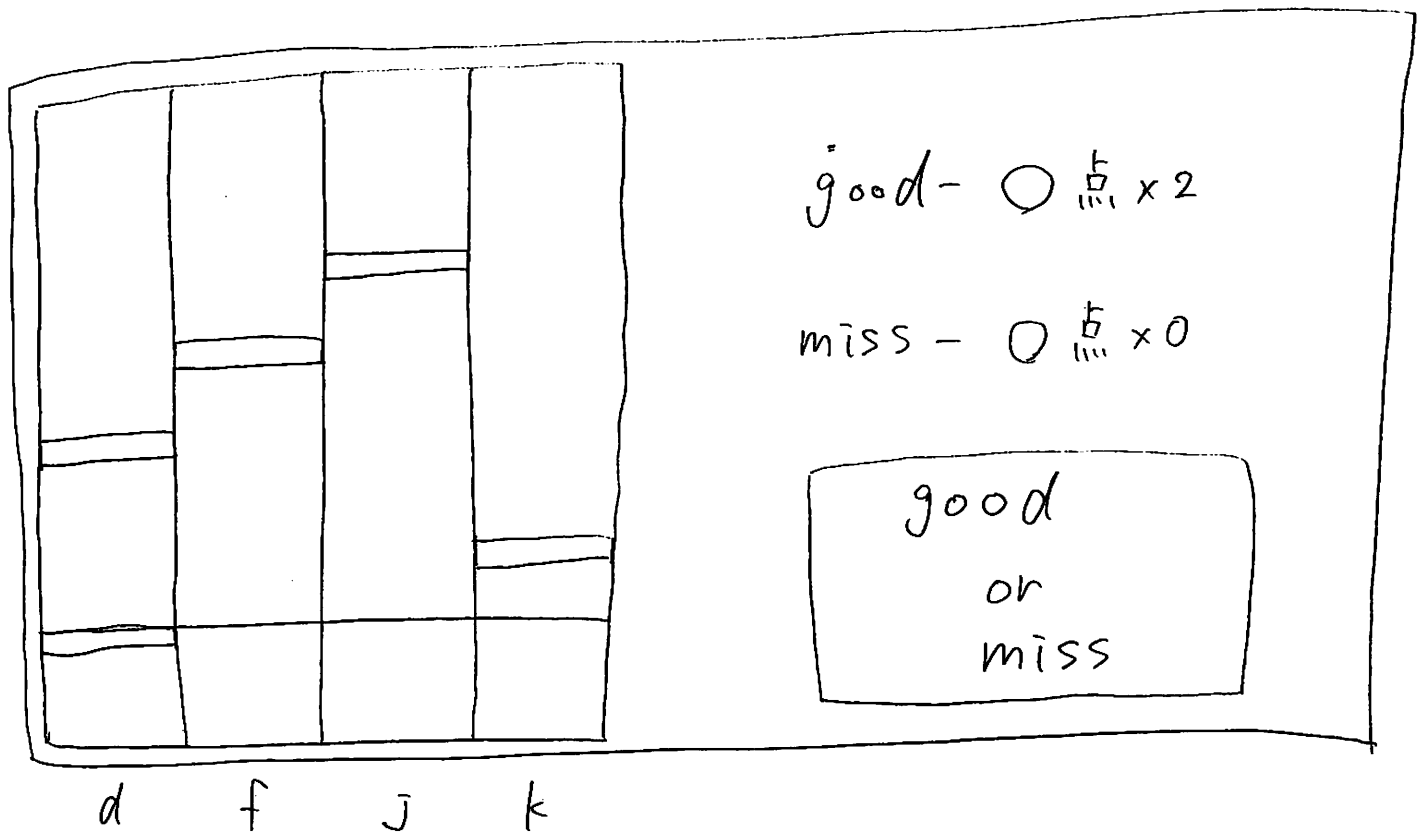 good- ○点×2
miss - ○点×0
good
or
miss
d f j k